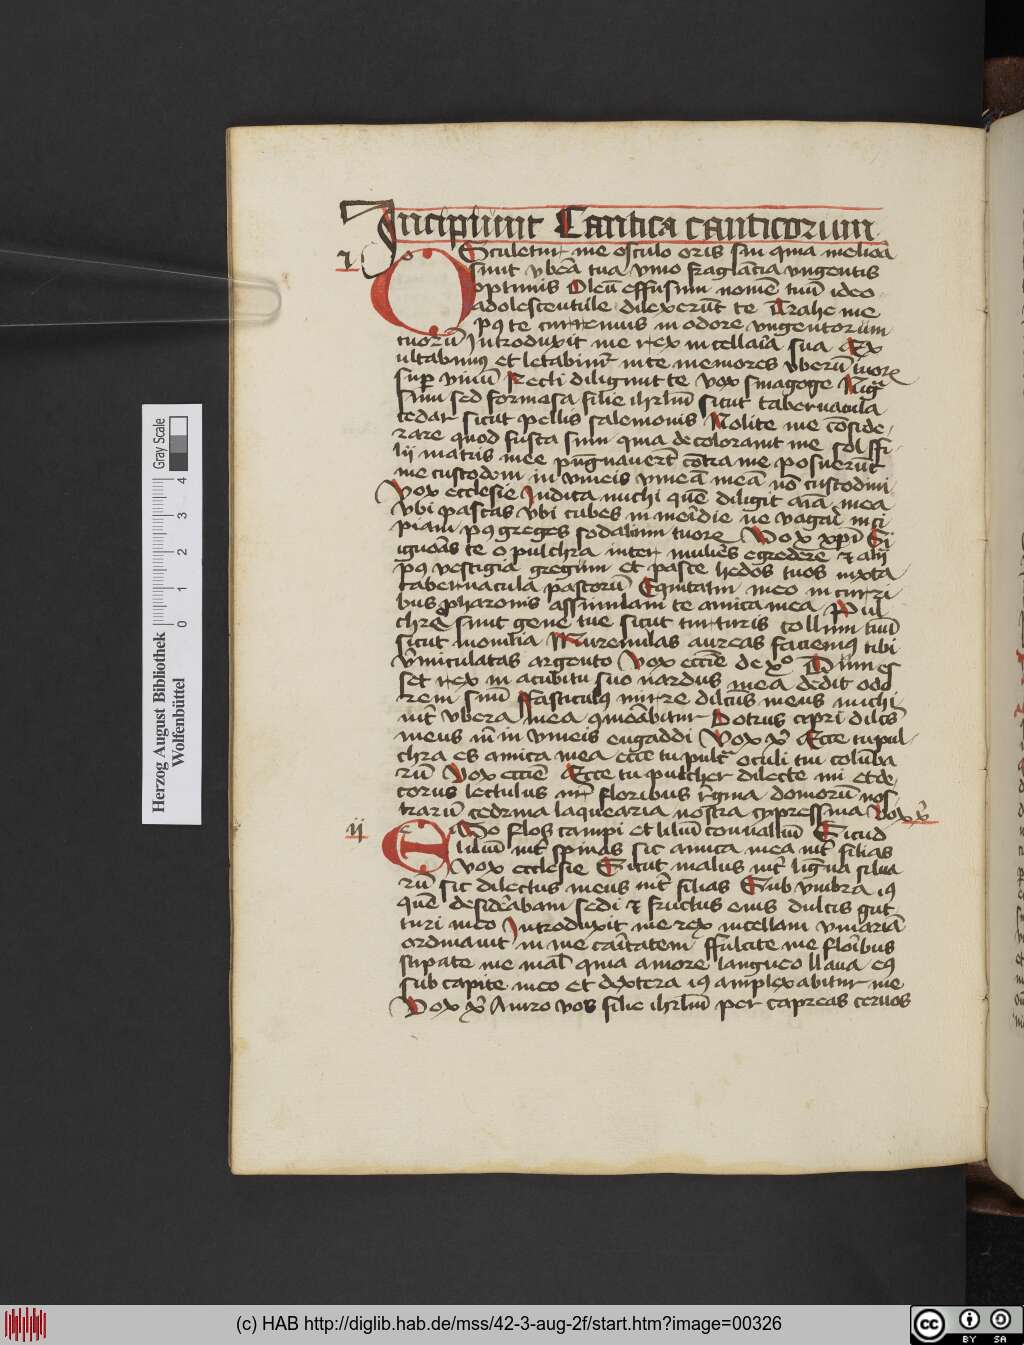 Incipiunt Cantica canticorum
1 o Osculetur me osculo oris sui quia meliora
sunt vbera tua vino fraglancia vngentis
optimis Oleū effusum nomē tuū ideo
adolescentule dilexerūt te Trahe me
pꝰ te curremus in odore vngentorum
tuorū Introduxit me rex in cellaria sua Ex
ultabimꝰ et letabimur in te memores vberū tuorꝝ
sup vinū Recti diligunt te vox sinagoge Nigra
sum sed formosa filie ihrlm̄ sicut tabernacula
cedar sicut pellis salemonis Nolite me cōside
rare quod fusca sim quia decolorauit me sol ffi
lij matris mee pugnauert̄ cōtra me posuerūt
me custodem in vineis vineā meā nō custodiui
Vox ecclesie Indica michi quē diligit aīa mea
vbi pascas vbi cubes in meridie ne vagari inci
piam pꝰ greges sodalium tuorꝝ Vox xpī Si
ignoās te o pulchra inter mulieres egredere ⁊ abij
pꝰ vestigia gregum et pasce hedos tuos iuxta
tabernacula pastorū Equitatui meo in curri
bus pharonis assimilaui te amica mea Pul
chre sunt gene tue sicut turturis collum tuū
sicut monilia Murenulas aureas faciemꝰ tibi
v̄miculatas argento Vox eccie de xº Dum es
set rex in acubitu suo nardus mea dedit odo
rem suū Fasticulus mirre dilcus meus michi
int̄ vbera mea qmorābitur Botrus cepri dilcs
meus m̄ in vineis engaddi Vox xp̄i Ecce tu pul
chra es amica mea ecce tu pulcra oculi tui columba
rū Vox eccie Ecce tu pulcher dilecte mi et de
corus lectulus nr̄ floribus v̄gina domorū nos
trarū cedrina laquearia nostra cypressina Vox xp̄i
ij Ego flos campi et liliū conualliū Sicud
liliū int̄ spinas sic amica mea int̄ filias
vox ecclesie Sicut malus int̄ ligna silua
rū sic dilectus meus int̄ filias Sub vmbra iꝰ
quē desiderabam sedi ⁊ fructus eius dulcis gut
turi meo Introduxit me rex in cellam vinariā
ordinauit in me caritatem ffulcite me floribus
stipate me mal̄ quia amore langueo llaua eꝰ
sub capite meo et dextera iꝰ amplexabitur me
Vox xp̄i Aniro vos filie ihrlm̄ per capreas ceruos
Herzog August Bibliothek
Wolfenbüttel
0 1 2 3 4
Gray Scale
(c) HAB http://diglib.hab.de/mss/42-3-aug-2f/start.htm?image=00326
cc BY SA